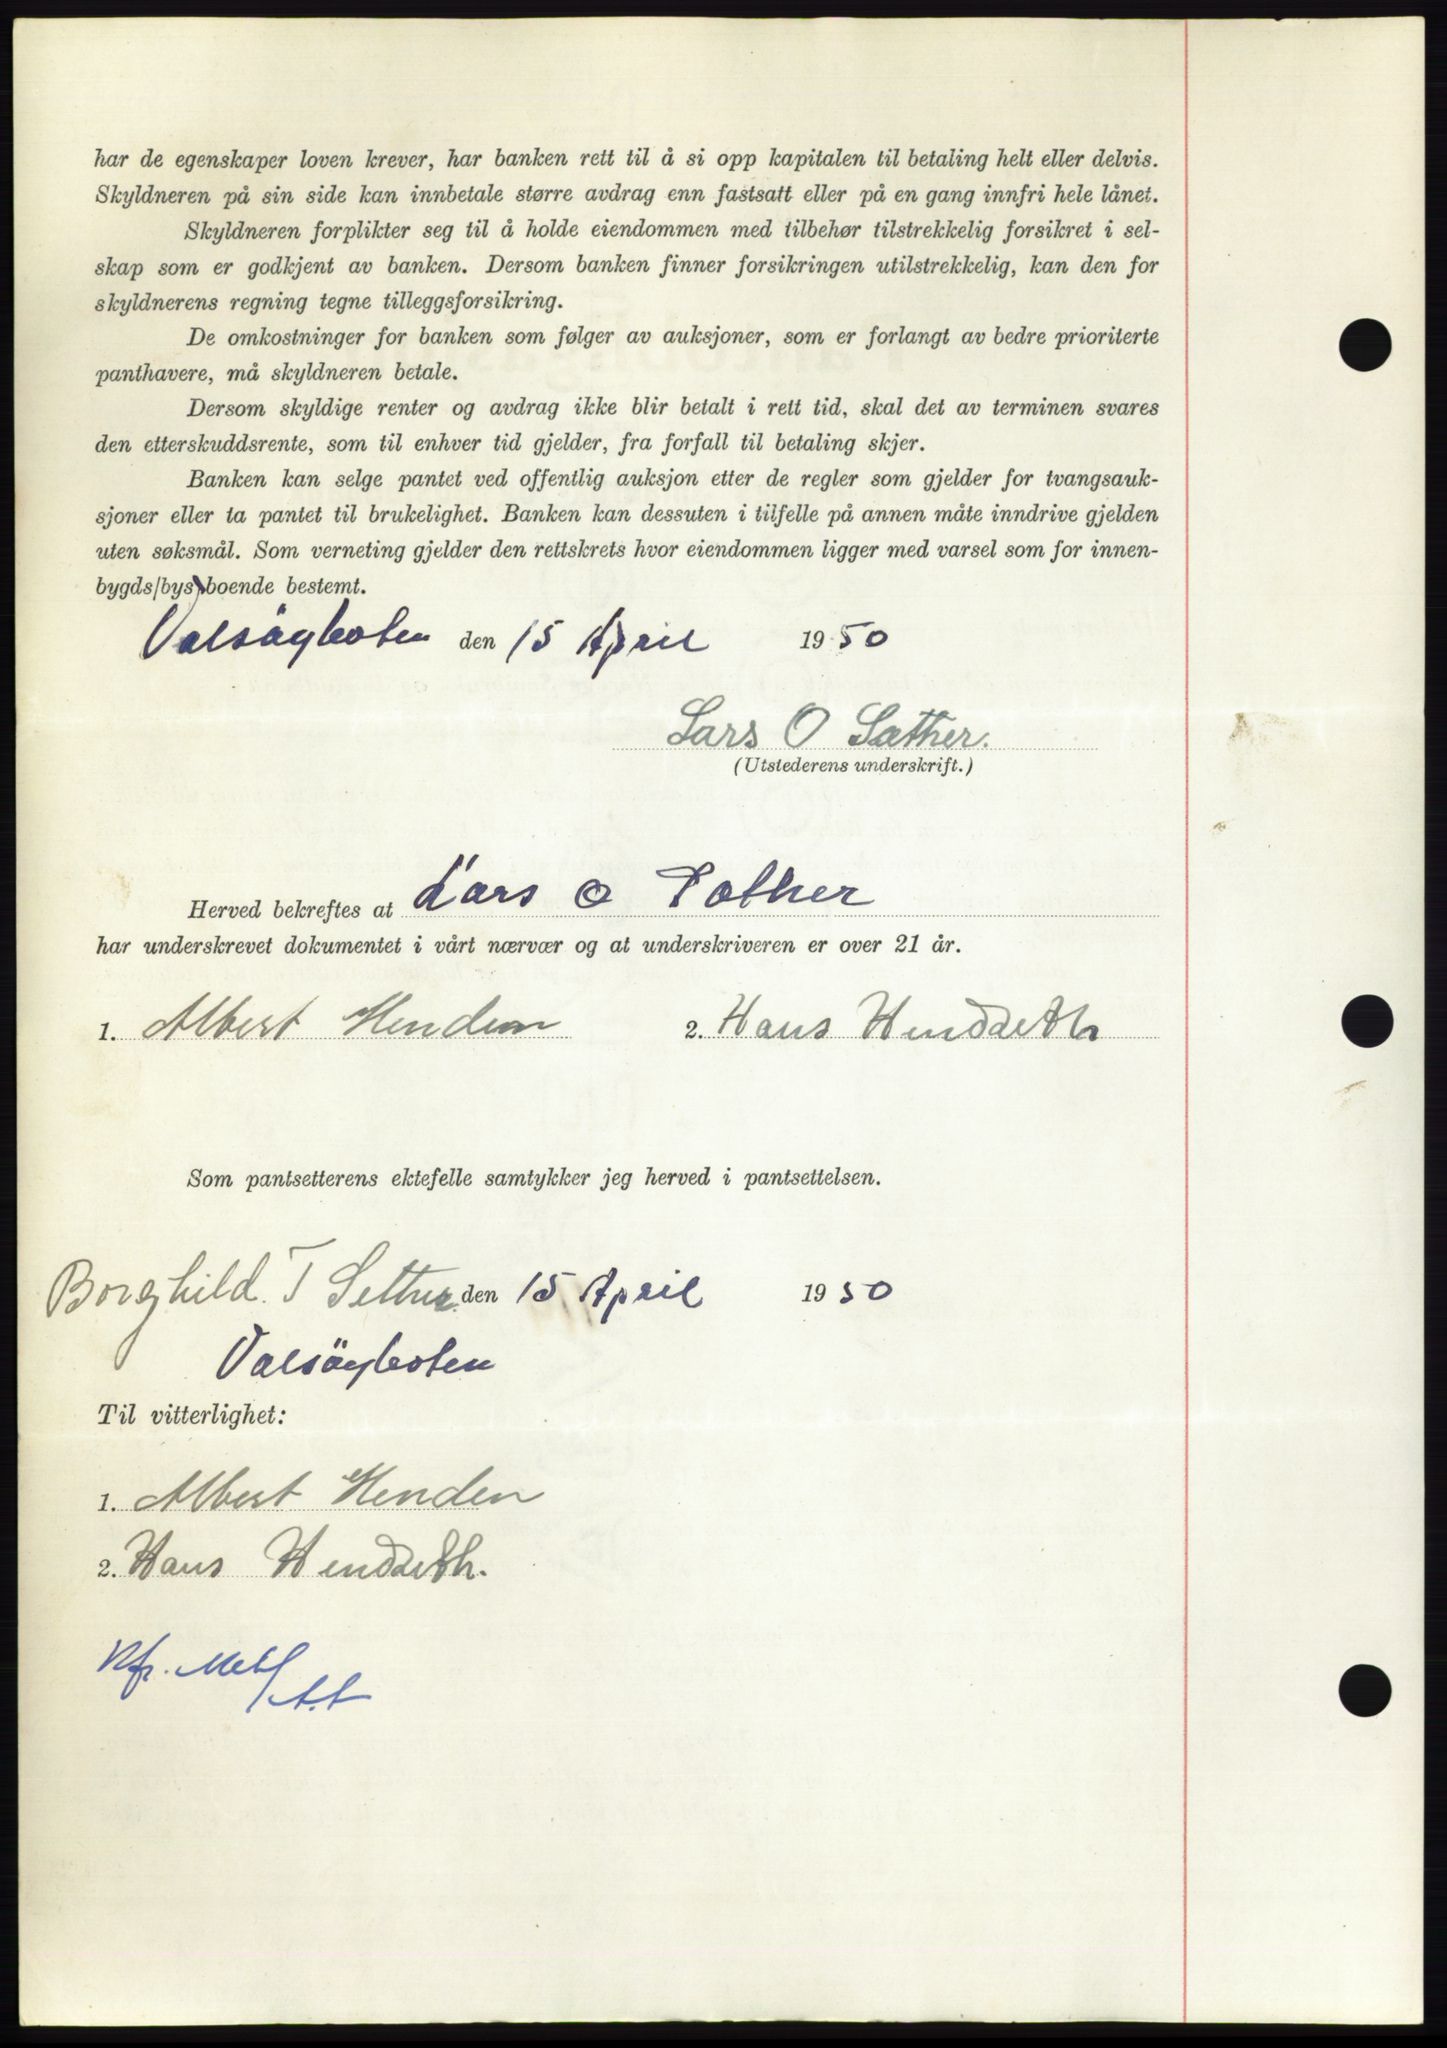 har de egenskaper loven krever, har banken rett til å si opp kapitalen til betaling helt eller delvis.
Skyldneren på sin side kan innbetale større avdrag enn fastsatt eller på en gang innfri hele lånet.
Skyldneren forplikter seg til å holde eiendommen med tilbehør tilstrekkelig forsikret i sel-
skap som er godkjent av banken. Dersom banken finner forsikringen utilstrekkelig, kan den for
skyldnerens regning tegne tilleggsforsikring.
De omkostninger for banken som følger av auksjoner, som er forlangt av bedre prioriterte
panthavere, må skyldneren betale.
Dersom skyldige renter og avdrag ikke blir betalt i rett tid, skal det av terminen svares
den etterskuddsrente, som til enhver tid gjelder, fra forfall til betaling skjer.
Banken kan selge pantet ved offentlig auksjon etter de regler som gjelder for tvangsauk-
sjoner eller ta pantet til brukelighet. Banken kan dessuten i tilfelle på annen måte inndrive gjelden
uten søksmål. Som verneting gjelder den rettskrets hvor eiendommen ligger med varsel som for innen-
bygds/bysboende bestemt.
Valsöyboten den 15 April 1950
Lars O Sæther.
(Utstederens underskrift.)
Herved bekreftes at Lars O Sæther
har underskrevet dokumentet i vårt nærvær og at underskriveren er over 21 år.
1. Albert Henden 2. Hans
Som pantsetterens ektefelle samtykker jeg herved i pantsettelsen.
Borghild. T den 15 April 1950
Valsöyboten
Til vitterlighet:
1. Albert Henden
2. Hans